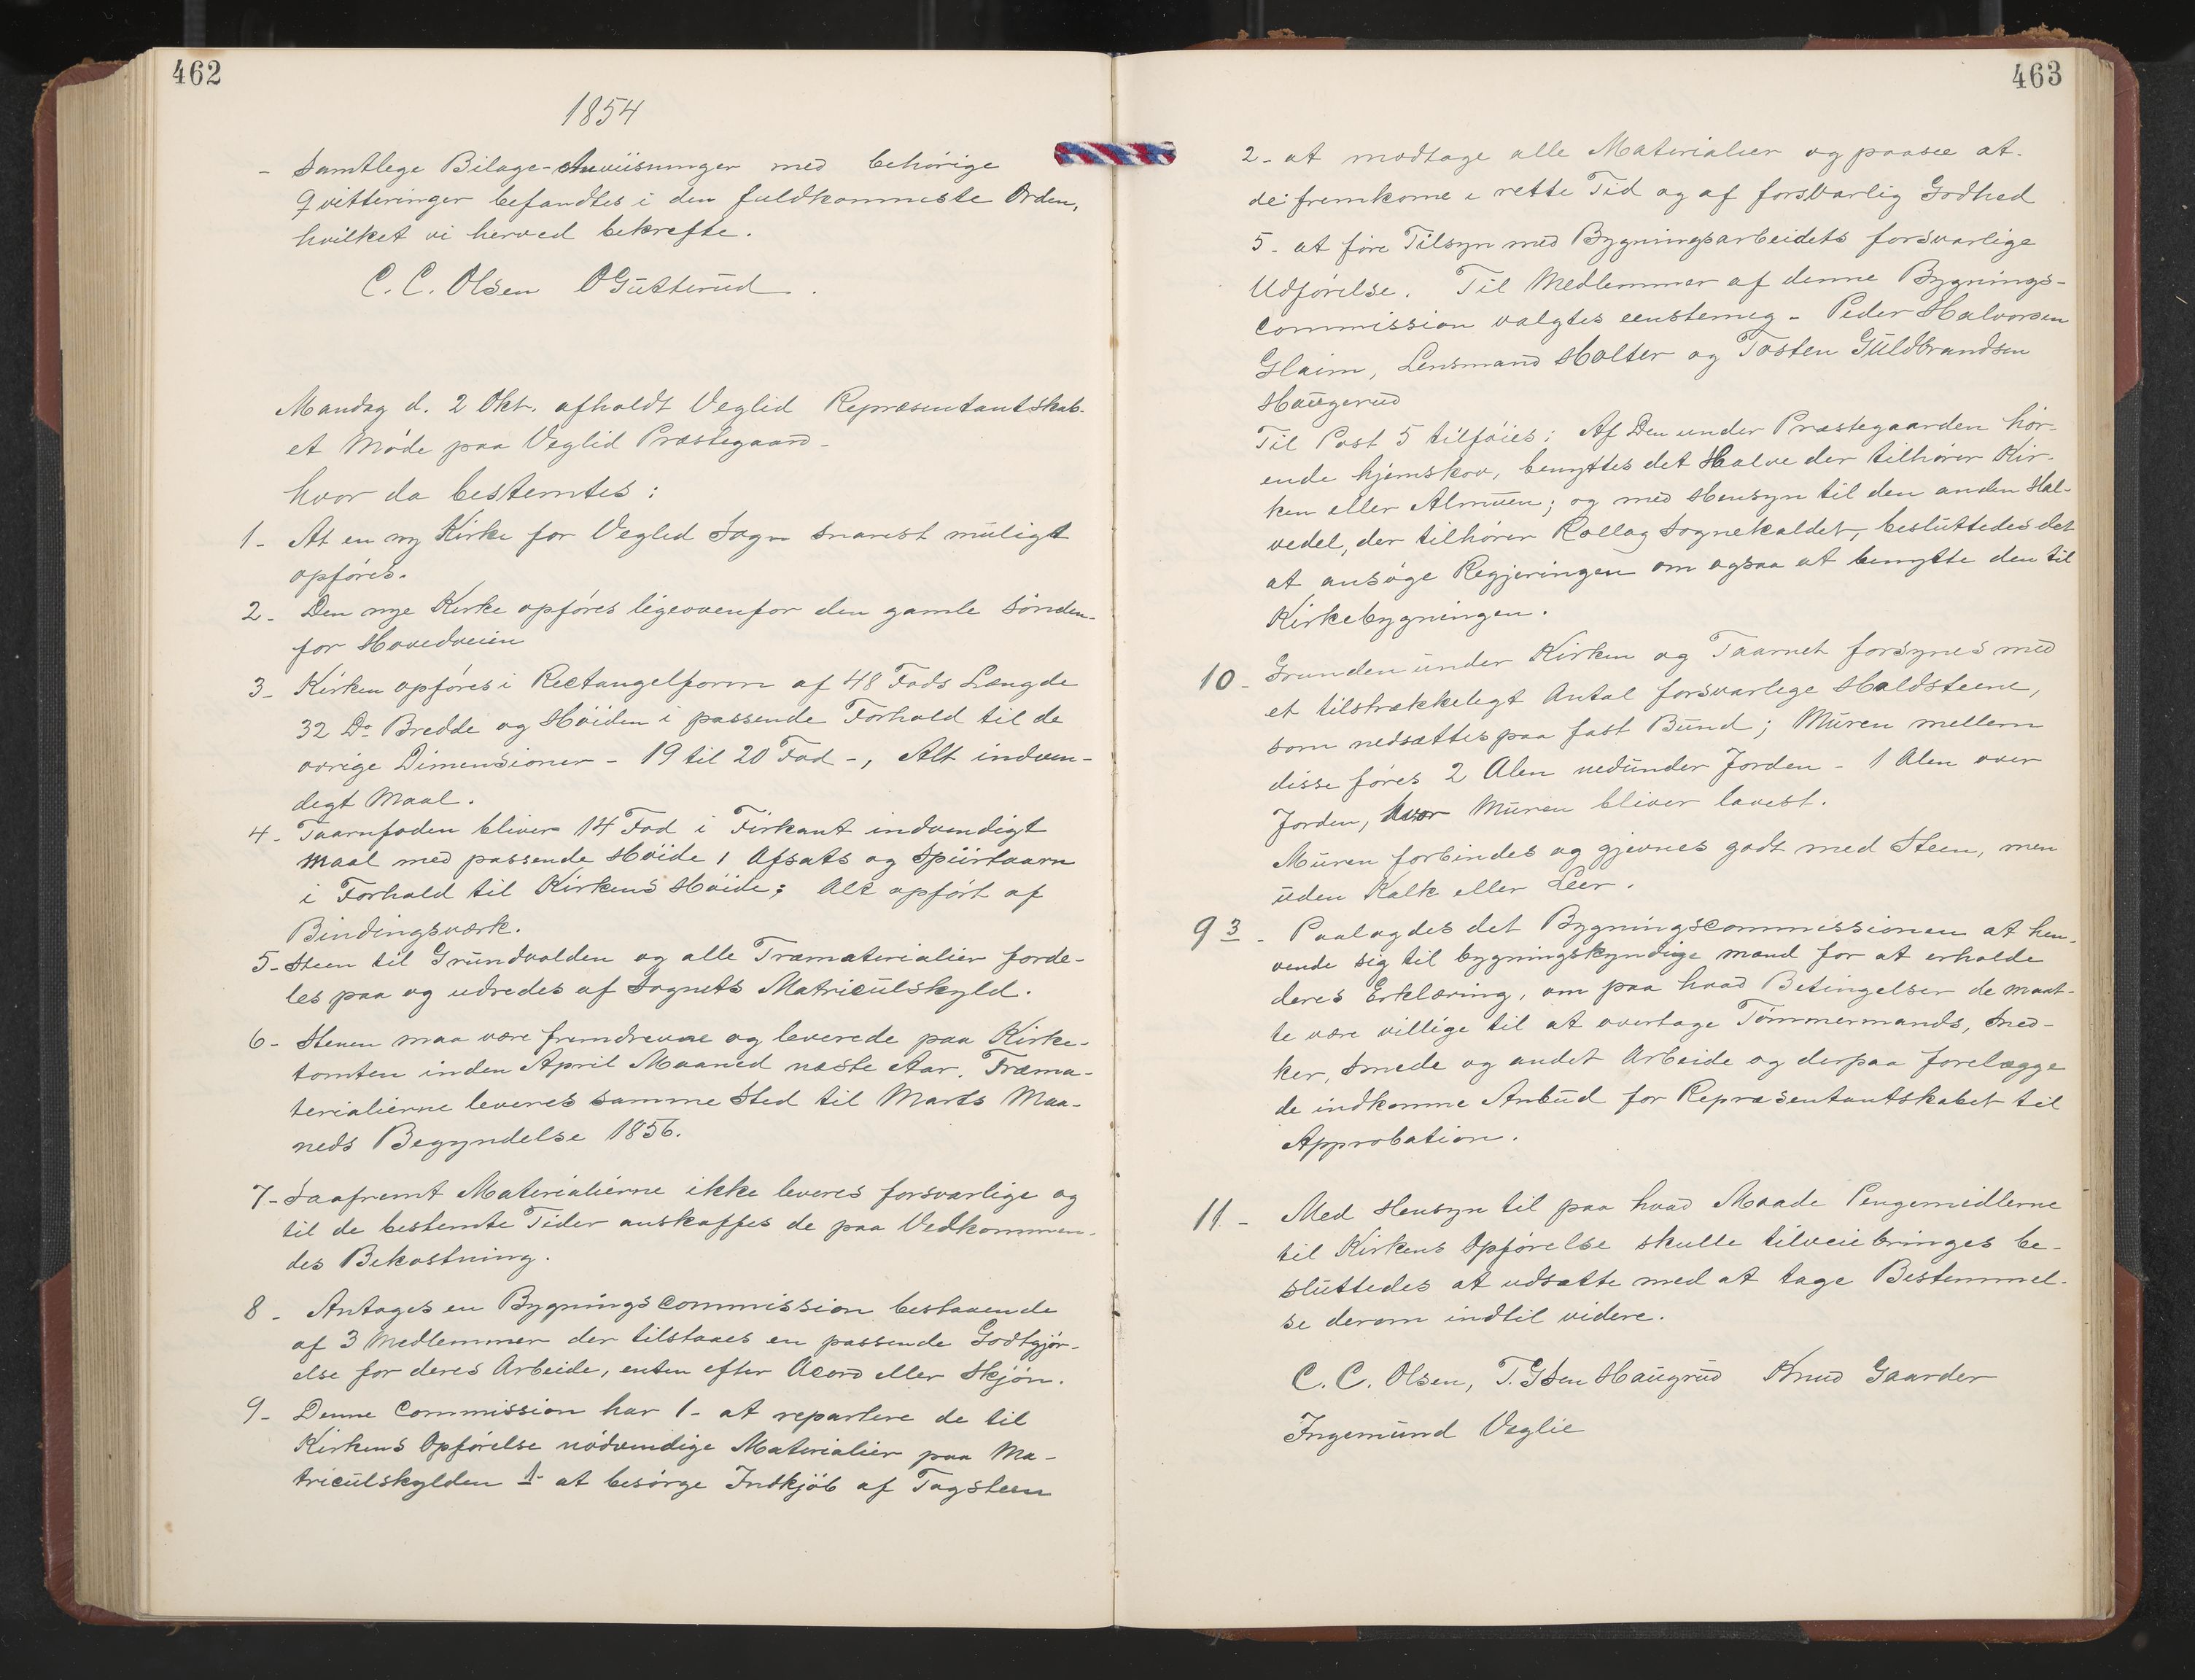 462
1854
- Samtlege Bilage-Anviisninger med behörige
Qvitteringer befandtes i den fuldkommeste Orden,
hvilket vi herved bekrefte.
C. C. Olsen OGutterud.
Mandag d. 2 Okt. afholdt Veglid Repræsentantskab-
et Möde paa Veglid Præstegaard -
hvor da bestemtes:
1 - At en ny Kirke for Veglid Sogn snarest muligt
opföres.
2 - Den nye Kirke opföres ligeovenfor den gamle sönden-
for Hovedveien
3 - Kirken opföres i Rectangelform af 48 Fods Længde
32 Do Bredde og Höiden i passende Forhold til de
övrige Dimensioner - 19 til 20 Fod -, Alt indven-
digt Maal.
4 - Taarnfoden bliver 14 Fod i Firkant indvendigt
Maal med passende Höide, 1 Afsats og Spiirtaarn
i Forhold til Kirkens Höide; Alt opfört af
Bindingsværk.
5 - Steen til Grundvolden og alle Træmaterialier forde-
les paa og udredes af Sognets Matriculskyld.
6 - Stenen maa være fremdrevne og leverede paa Kirke-
tomten inden April Maaned næste Aar. Træma-
terialierne leveres samme Sted til Marts Maa-
neds Begyndelse 1856.
7 - Saafremt Materialierne ikke leveres forsvarlige og
til de bestemte Tider anskaffes de paa Vedkommen-
des Bekostning.
8 - Antages en Bygningscommission bestaaende
af 3 Medlemmer der tilstaaes en passende Godtgjör-
else for deres Arbeide, enten efter Acord eller Skjön.
9 - Denne Commission har 1 - at repartere de til
Kirkens Opförelse nödvendige Materialier paa Ma-
triculskylden 1 - at besörge Indkjöb af Tagsteen
463
2 - at modtage alle Materialier og paasee at
de fremkome i rette Tid og af forsvarlig Godhed
5 - at före Tilsyn med Bygningsarbeidets forsvarlige
Udförelse. Til Medlemmer af denne Bygnings-
commission valgtes eenstemig - Peder Halvorsen
Glaim, Lensmand Holter og Tosten Guldbrandsen
Haugerud
Til Post 5 tilföies: Af Den under Præstegaarden hör-
ende hjemskov, benyttes det Halve der tilhörer Kir-
ken eller Almuen; og med Hensyn til den anden Hal-
vedel, der tilhörer Rollag Sognekaldet, besluttedes det
at ansöge Regjeringen om ogsaa at benytte den til
Kirkebygningen.
10 - Grunden under Kirken og Taarnet forsynes med
et tilstrækkeligt Antal forsvarlege Holdsteene,
som nedsættes paa fast Bund; Muren mellem
disse föres 2 Alen nedunder Jorden - 1 Alen over
Jorden, hvor Muren bliver lavest.
Muren forbindes og gjevnes godt med Steen, men
uden Kalk eller Leer.
9 3 - Paalagdes det Bygningscommissionen at hen-
vende sig til bygningskyndige mænd for at erholde
deres Erklæring, om paa hvad Betingelser de maat-
te være villige til at overtage Tömmermands, Sned-
ker, Smede og andet Arbeide og derpaa forelægge
de indkomne Anbud for Repræsentantskabet til
Approbation.
11 - Med Hensyn til paa hvad Maade Pengemidlerne
til Kirkens Opförelse skulle tilveiebringes be-
sluttedes at udsætte med at tage Bestemmel-
se derom indtil videre.
C. C. Olsen, T. GSen Haugrud Knud Gaarder
Ingemund Veglie